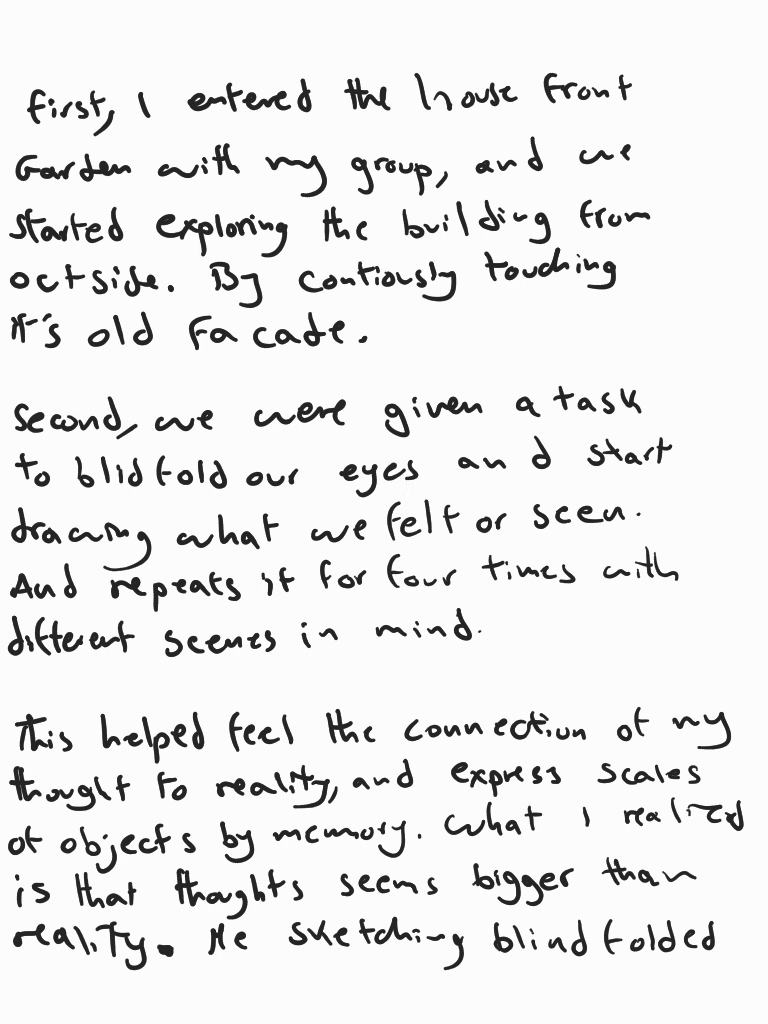 First, I entered the house front
Garden with my group, and we
started exploring the building from
octside. By contiously touching
it's old facade.
Second, we were given a task
to blidfold our eyes and start
drawing what we felt or seen.
And repeats it for four times with
different scenes in mind.
This helped feel the connection of my
thought to reality, and express scales
of objects by memory. What I realized
is that thoughts seems bigger than
reality. Me sketching blindfolded